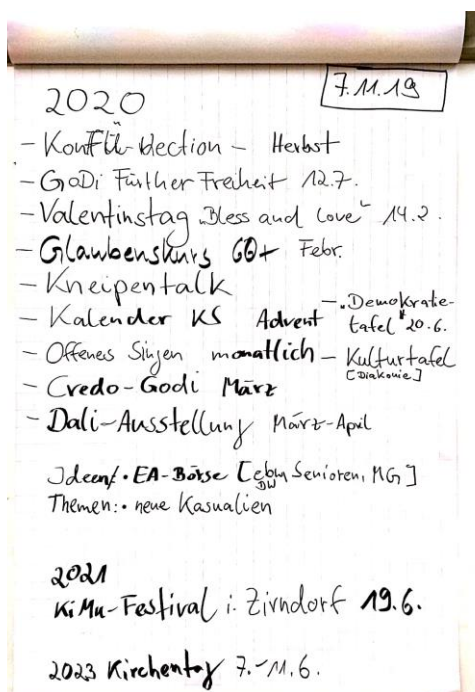 7.11.19
2020
- KonFÜ-bection - Herbst
- GoDi Fürther Freiheit 12.7.
- Valentinstag „Bless and love" 14.2.
- Glaubenskurs 60+ Febr.
- Kneipentalk
- Kalender KS Advent
- „Demokratie-
tafel" 20.6.
- Offenes Singen monatlich
- Kulturtafel
[Diakonie]
- Credo-Godi März
- Dali-Ausstellung März-April
Ideen/ • EA-Börse [ebw Senioren, MG]
DW
Themen: • neue Kasualien
2021
KiMu-Festival i. Zirndorf 19.6.
2023 Kirchentag 7.-11.6.